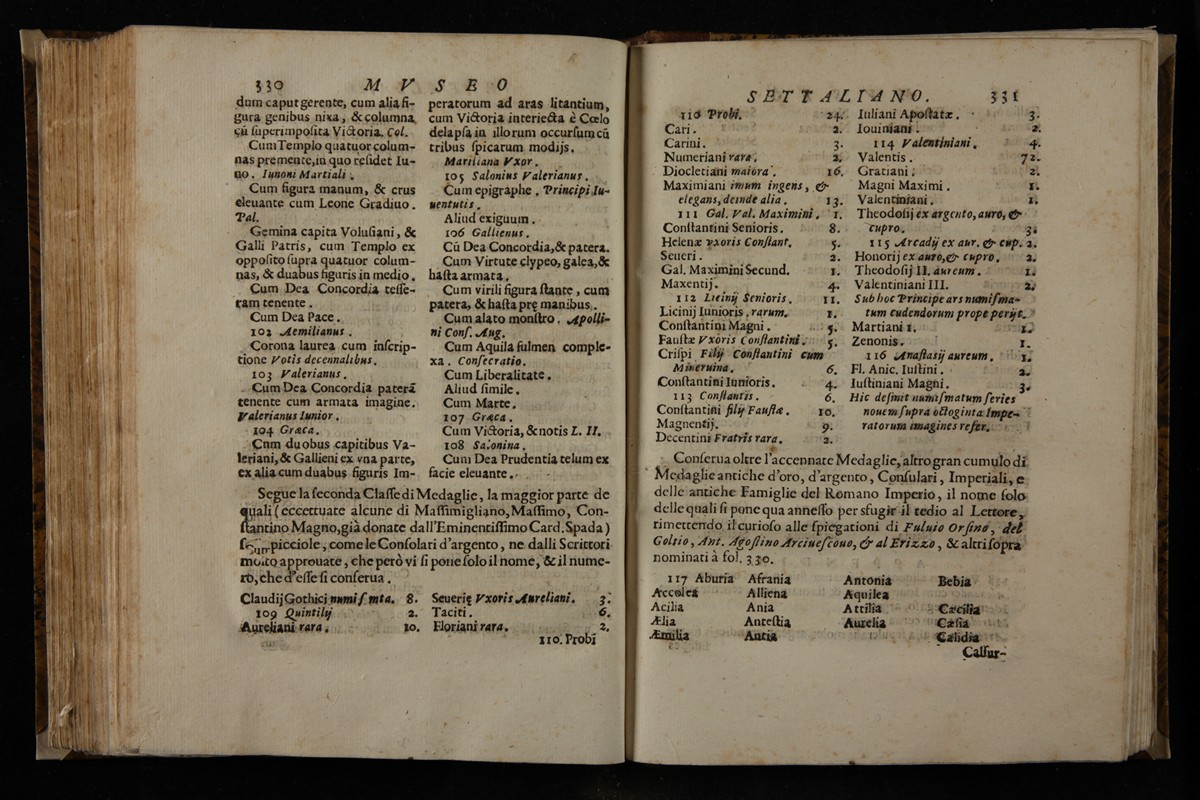 330 M V S E O
dum caput gerente, cum alia fi-
gura genibus nixa, & columna
cũ ſuperimpoſita Victoria. Col.
Cum Templo quatuor colum-
nas premente, in quo reſidet Iu-
no. Iunoni Martiali.
Cum figura manum, & crus
eleuante cum Leone Gradiuo.
Pal.
Gemina capita Voluſiani, &
Galli Patris, cum Templo ex
oppoſito ſupra quatuor colum-
nas, & duabus figuris in medio.
Cum Dea Concordia teſſe-
ram tenente.
Cum Dea Pace.
102 Aemilianus.
Corona laurea cum inſcrip-
tione Votis decennalibus.
103 Valerianus.
Cum Dea Concordia paterã
tenente cum armata imagine.
Valerianus Iunior.
104 Græca.
Cum duobus capitibus Va-
leriani, & Gallieni ex vna parte,
ex alia cum duabus figuris Im-
peratorum ad aras litantium,
cum Victoria interiecta è Cœlo
delapſa in illorum occurſum cũ
tribus ſpicatum modijs.
Mariliana Vxor.
105 Salonius Valerianus.
Cum epigraphe. Principi Iu-
uentutis.
Aliud exiguum.
106 Gallienus.
Cũ Dea Concordia, & patera.
Cum Virtute clypeo, galea, &
haſta armata.
Cum virili figura ſtante, cum
patera, & haſta pre manibus.
Cum alato monſtro. Apolli-
ni Conſ. Aug.
Cum Aquila fulmen comple-
xa. Conſecratio.
Cum Liberalitate.
Aliud ſimile.
Cum Marte.
107 Græca.
Cum Victoria, & notis L. II.
108 Salonina.
Cum Dea Prudentia telum ex
facie eleuante.
Segue la ſeconda Claſſe di Medaglie, la maggior parte de
quali (eccettuate alcune di Maſſimigliano, Maſſimo, Con-
ſtantino Magno, già donate dall'Eminentiſſimo Card. Spada)
picciole, come le Conſolari d'argento, ne dalli Scrittori
molto approuate, che però vi ſi pone ſolo il nome, & il nume-
rò, che d'eſſe ſi conſerua.
Claudij Gothici numiſmta. 8.
109 Quintilij 2.
Aureliani rara. 10.
Seuerię Vxoris Aureliani. 3.
Taciti. 6.
Floriani rara. 2.
110. Probi
SETTALIANO. 331
110 Probi. 24.
Cari. 2.
Carini. 3.
Numeriani rara. 2.
Diocletiani maiora. 16.
Maximiani imum ingens, &
elegans, deinde alia. 13.
111 Gal. Val. Maximini. 1.
Conſtantini Senioris. 8.
Helenæ vxoris Conſtant. 5.
Seueri. 2.
Gal. Maximini Secund. 1.
Maxentij. 4.
112 Licinij Senioris. 11.
Licinij Iunioris, rarum. 1.
Conſtantini Magni. 5.
Fauſtæ Vxoris Conſtantini. 5.
Criſpi Filij Conſtantini cum
Mineruina. 6.
Conſtantini Iunioris. 4.
113 Conſtantis. 6.
Conſtantini filij Fauſtæ. 10.
Magnentij. 9.
Decentini Fratris rara. 2.
Iuliani Apoſtatæ. 3.
Iouiniani. 2.
114 Valentiniani. 4.
Valentis. 72.
Gratiani. 2.
Magni Maximi. 1.
Valentiniani. 1.
Theodoſij ex argento, auro, &
cupro. 3.
115 Arcadij ex aur. & cup. 2.
Honorij ex auro, & cupro. 2.
Theodoſij II. aureum. 1.
Valentiniani III. 2.
Sub hoc Principe ars numiſma-
tum cudendorum prope perijt.
Martiani 1. 1.
Zenonis. 1.
116 Anaſtaſij aureum. 1.
Fl. Anic. Iuſtini. 2.
Iuſtiniani Magni. 3.
Hic deſinit numiſmatum ſeries
nouem ſupra octoginta Impe-
ratorum imagines refer.
Conſerua oltre l'accennate Medaglie, altro gran cumulo di
Medaglie antiche d'oro, d'argento, Conſulari, Imperiali, e
delle antiche Famiglie del Romano Imperio, il nome ſolo
delle quali ſi pone qua anneſſo per sfugir il tedio al Lettore,
rimettendo il curioſo alle ſpiegationi di Fuluio Orſino, del
Goltio, Ant. Agoſtino Arciueſcouo, & al Erizzo, & altri ſopra
nominati à fol. 330.
117 Aburia Afrania Antonia Bebia
Accolea Alliena Aquilea
Acilia Ania Attilia Cæcilia
Ælia Anteſtia Aurelia Cæſia
Æmilia Antia Calidia
Calfur-